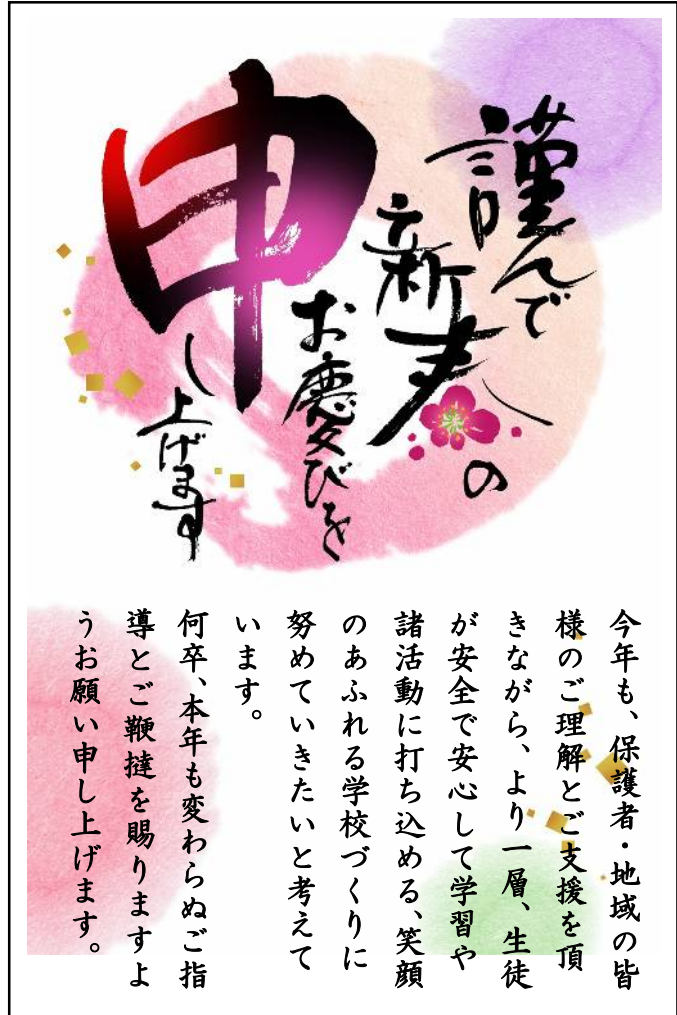 謹んで
新春の
お慶びを
申し上げます
今年も、保護者・地域の皆
様のご理解とご支援を頂
きながら、より一層、生徒
が安全で安心して学習や
諸活動に打ち込める、笑顔
のあふれる学校づくりに
努めていきたいと考えて
います。
何卒、本年も変わらぬご指
導とご鞭撻を賜りますよ
うお願い申し上げます。